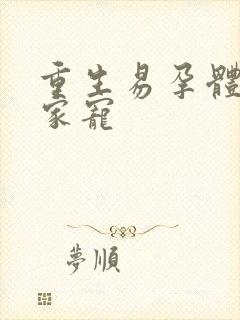 重生易孕體
家寵
夢順